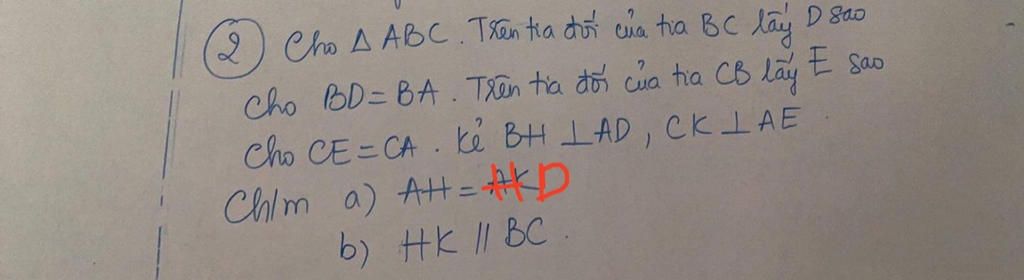 ② Cho Δ ABC. Trên tia đối của tia BC lấy D sao
cho BD = BA. Trên tia đối của tia CB lấy E sao
cho CE = CA. Kẻ BH ⊥ AD, CK ⊥ AE.
Ch/m a) AH = HD
b) HK // BC.